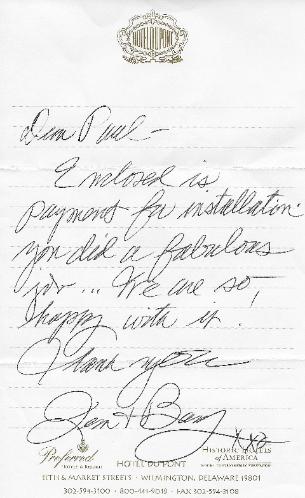 HOTEL DU PONT
Dear Paul -
Enclosed is
payment for installation.
You did a fabulous
job... We are so,
happy with it.
Thank you
xxo
Preferred
HOTELS & RESORTS
HOTEL DU PONT
HISTORIC HOTELS
of AMERICA
11TH & MARKET STREETS · WILMINGTON, DELAWARE 19801
302-594-3100 · 800-441-9019 · FAX 302-594-3108